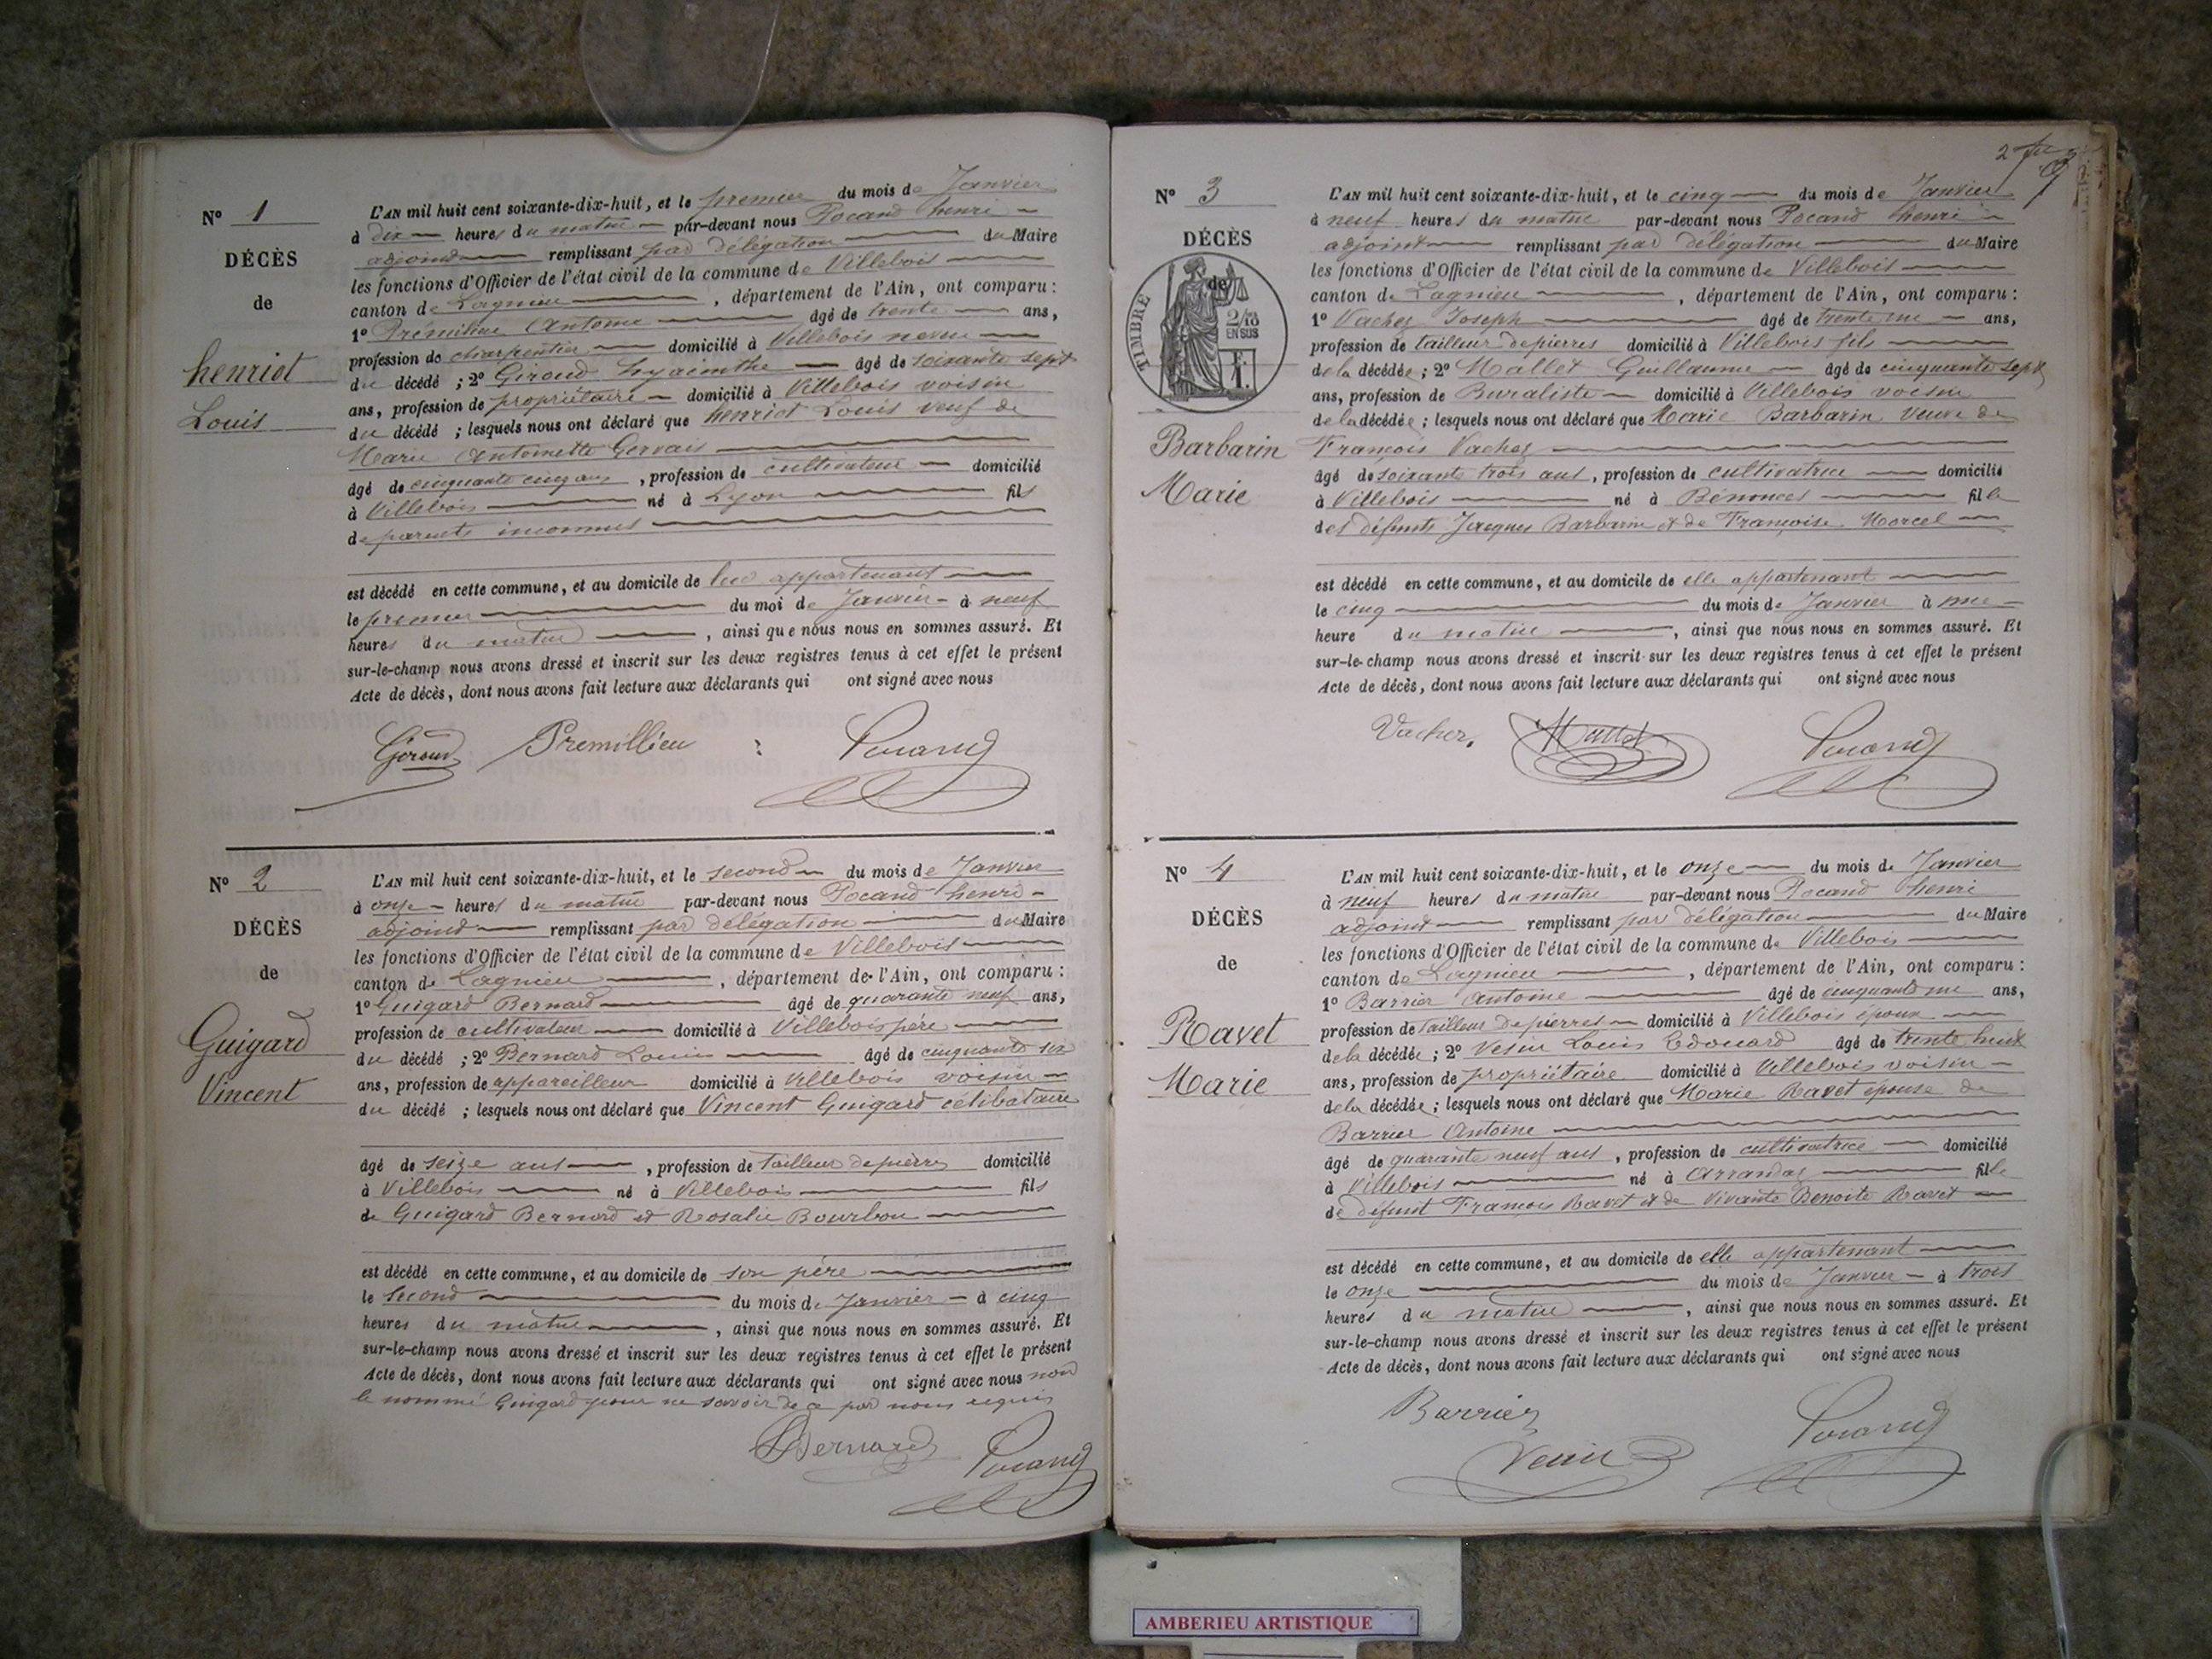 N° 1
DÉCÈS
de
henriot
Louis
L'AN mil huit cent soixante-dix-huit, et le premier du mois de Janvier
à dix heures du matin par-devant nous Pocand henri
adjoint remplissant par délégation du Maire
les fonctions d'Officier de l'état civil de la commune de Villebois
canton de Lagnieu, département de l'Ain, ont comparu :
1° Prémillieu Antoine âgé de trente ans,
profession de charpentier domicilié à Villebois neveu
du décédé ; 2° Giroud hyacinthe âgé de soixante sept
ans, profession de propriétaire domicilié à Villebois voisin
du décédé ; lesquels nous ont déclaré que henriot Louis veuf de
Marie Antoinette Gervais
âgé de cinquante cinq ans, profession de cultivateur domicilié
à Villebois né à Lyon fils
de parents inconnus
est décédé en cette commune, et au domicile de lui appartenant
le premier du moi de Janvier à neuf
heures du matin, ainsi que nous nous en sommes assuré. Et
sur-le-champ nous avons dressé et inscrit sur les deux registres tenus à cet effet le présent
Acte de décès, dont nous avons fait lecture aux déclarants qui ont signé avec nous
Giroud Premillieu Pocand
N° 2
DÉCÈS
de
Guigard
Vincent
L'AN mil huit cent soixante-dix-huit, et le second du mois de Janvier
à onze heures du matin par-devant nous Pocand henri
adjoint remplissant par délégation du Maire
les fonctions d'Officier de l'état civil de la commune de Villebois
canton de Lagnieu, département de l'Ain, ont comparu :
1° Guigard Bernard âgé de quarante neuf ans,
profession de cultivateur domicilié à Villebois père
du décédé ; 2° Bernard Louis âgé de cinquante six
ans, profession de appareilleur domicilié à Villebois voisin
du décédé ; lesquels nous ont déclaré que Vincent Guigard célibataire
âgé de seize ans, profession de tailleur de pierres domicilié
à Villebois né à Villebois fils
de Guigard Bernard et Rosalie Bourbon
est décédé en cette commune, et au domicile de son père
le second du mois de Janvier à cinq
heures du matin, ainsi que nous nous en sommes assuré. Et
sur-le-champ nous avons dressé et inscrit sur les deux registres tenus à cet effet le présent
Acte de décès, dont nous avons fait lecture aux déclarants qui ont signé avec nous non
le nommé Guigard pour ne savoir de ce par nous requis
Bernard Pocand
2
N° 3
DÉCÈS
de
TIMBRE
2/10
EN SUS
Barbarin
Marie
L'AN mil huit cent soixante-dix-huit, et le cinq du mois de Janvier
à neuf heures du matin par-devant nous Pocand henri
adjoint remplissant par délégation du Maire
les fonctions d'Officier de l'état civil de la commune de Villebois
canton de Lagnieu, département de l'Ain, ont comparu :
1° Vacher Joseph âgé de trente un ans,
profession de tailleur de pierres domicilié à Villebois fils
de la décédée ; 2° Mallet Guillaume âgé de cinquante sept
ans, profession de Buraliste domicilié à Villebois voisin
de la décédée ; lesquels nous ont déclaré que Marie Barbarin Veuve de
François Vacher
âgé de soixante trois ans, profession de cultivatrice domicilié
à Villebois né à Bénonces fille
des défunts Jacques Barbarin et de Françoise Morcel
est décédé en cette commune, et au domicile de elle appartenant
le cinq du mois de Janvier à une
heure du matin, ainsi que nous nous en sommes assuré. Et
sur-le-champ nous avons dressé et inscrit sur les deux registres tenus à cet effet le présent
Acte de décès, dont nous avons fait lecture aux déclarants qui ont signé avec nous
Vacher, Mallet Pocand
N° 4
DÉCÈS
de
Ravet
Marie
L'AN mil huit cent soixante-dix-huit, et le onze du mois de Janvier
à neuf heures du matin par-devant nous Pocand henri
adjoint remplissant par délégation du Maire
les fonctions d'Officier de l'état civil de la commune de Villebois
canton de Lagnieu, département de l'Ain, ont comparu :
1° Barrier Antoine âgé de cinquante un ans,
profession de tailleur de pierres domicilié à Villebois époux
de la décédée ; 2° Vesin Louis Edouard âgé de trente huit
ans, profession de propriétaire domicilié à Villebois voisin
de la décédée ; lesquels nous ont déclaré que Marie Ravet épouse de
Barrier Antoine
âgé de quarante neuf ans, profession de cultivatrice domicilié
à Villebois né à Arrandas fille
de défunt François Ravet et de Vivante Benoite Ravet
est décédé en cette commune, et au domicile de elle appartenant
le onze du mois de Janvier à trois
heures du matin, ainsi que nous nous en sommes assuré. Et
sur-le-champ nous avons dressé et inscrit sur les deux registres tenus à cet effet le présent
Acte de décès, dont nous avons fait lecture aux déclarants qui ont signé avec nous
Barrier Pocand
Vesin
AMBERIEU ARTISTIQUE